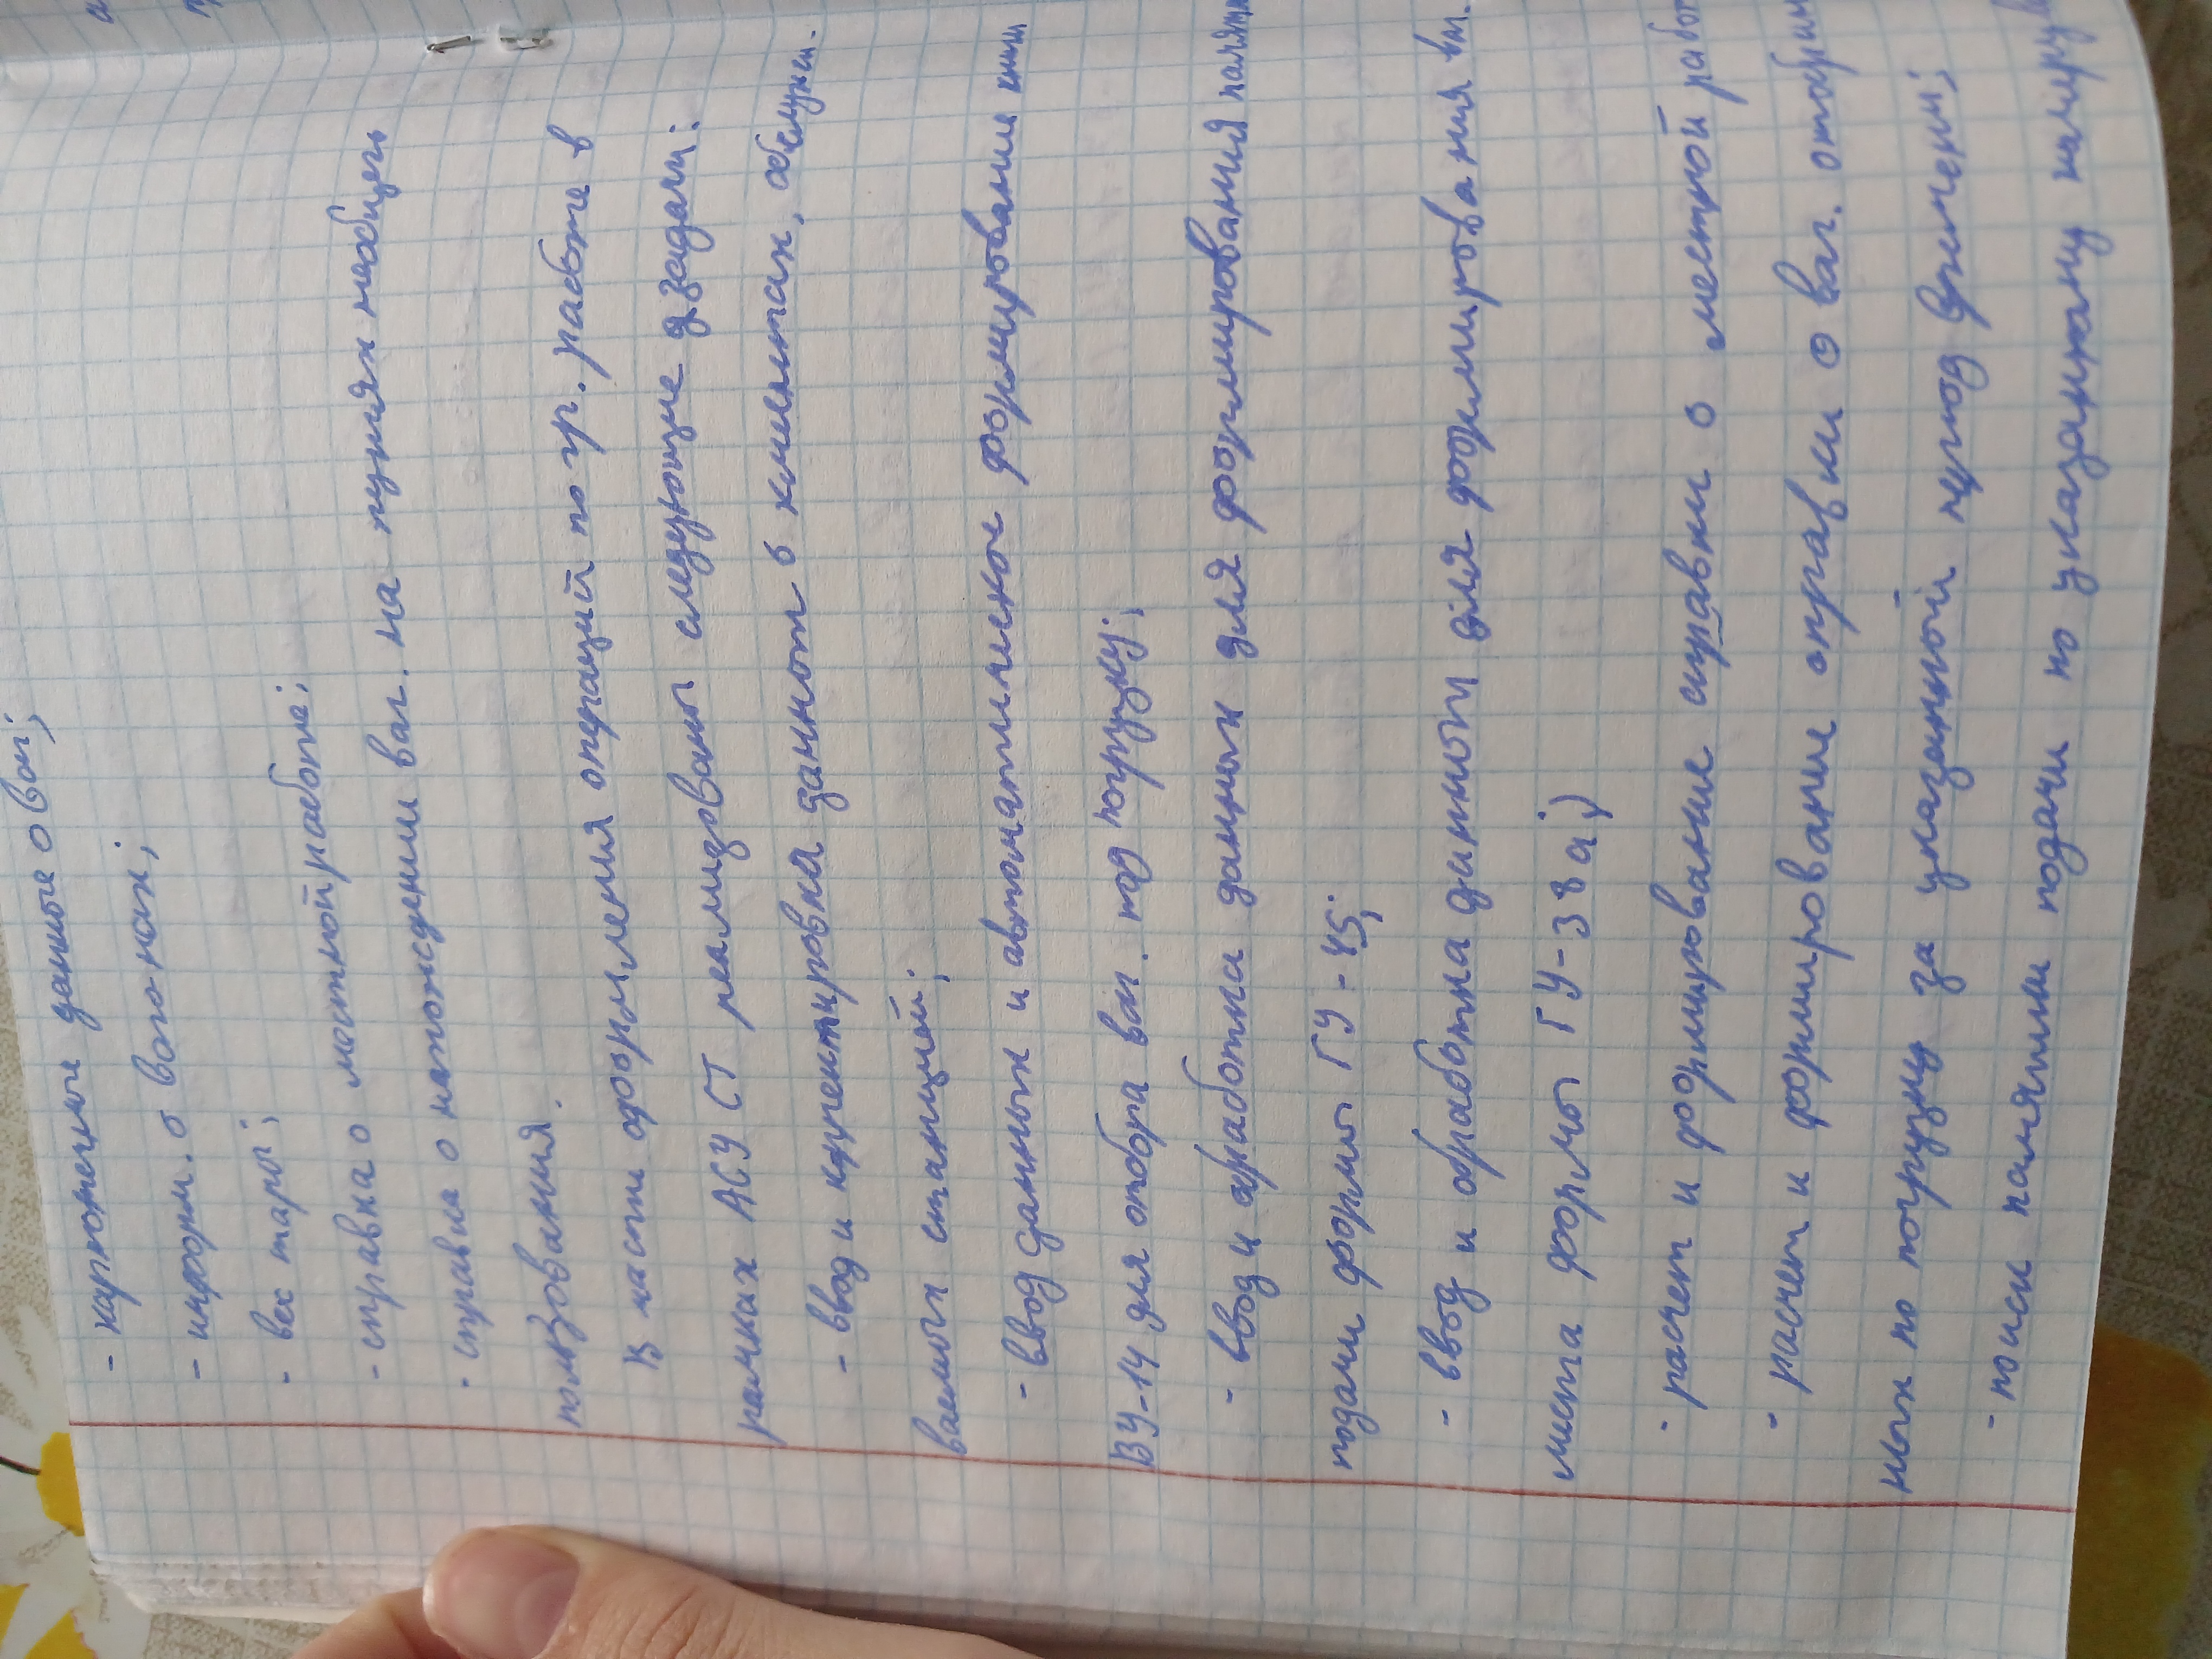 - картотечные данные о ваг;
- информ. о вагонах;
- вес тары;
- справка о местной работе;
- справка о нахождении ваг. на путях необщего
пользования.
В части оформления операций по гр. работе в
рамках АСУ СТ реализованы следующие задачи:
- ввод и корректировка данных о клиентах, обслужи-
ваемых станцией;
- ввод данных и автоматическое формирование книги
ВУ-14 для отбора ваг. под погрузку;
- ввод и обработка данных для формирования памятки
подачи формы ГУ-45;
- ввод и обработка данных для формирования
мента формы ГУ-38а;
- расчет и формирование справки о местной работ
- расчет и формирование справки о ваг. отобран
ных по погрузку за указанный период времени;
- поиск памятки подачи по указанному